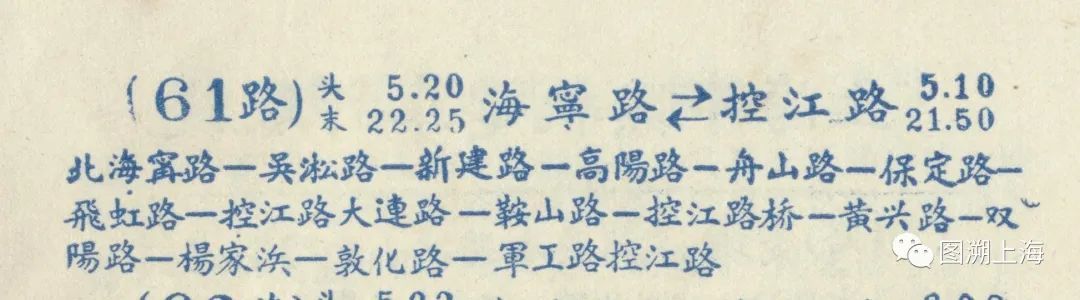 (61路) 头 5.20 海寧路⇄控江路 5.10
末 22.25 21.50
北海甯路—吳淞路—新建路—高陽路—舟山路—保定路—
飛虹路—控江路大連路—鞍山路—控江路桥—黄兴路—双
陽路—楊家浜—敦化路—軍工路控江路
图溯上海